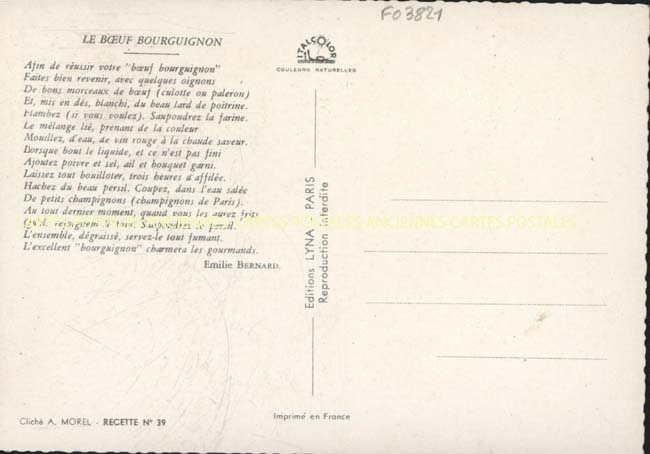 FO3821
LE BŒUF BOURGUIGNON
Afin de réussir votre "bœuf bourguignon"
Faites bien revenir, avec quelques oignons
De bons morceaux de bœuf (culotte ou paleron)
Et, mis en dés, blanchi, du beau lard de poitrine.
Flambez (si vous voulez). Saupoudrez la farine.
Le mélange lié, prenant de la couleur
Mouillez, d'eau, de vin rouge à la chaude saveur.
Lorsque bout le liquide, et ce n'est pas fini
Ajoutez poivre et sel, ail et bouquet garni.
Laissez tout bouilloter, trois heures d'affilée.
Hachez du beau persil. Coupez, dans l'eau salée
De petits champignons (champignons de Paris).
Au tout dernier moment, quand vous les aurez frits
tout. Saupoudrez le persil.
L'ensemble, dégraissé, servez-le tout fumant.
L'excellent "bourguignon" charmera les gourmands.
Emilie BERNARD.
ITALCOLOR
COULEURS NATURELLES
Editions LYNA - PARIS
Reproduction Interdite
CARTES POSTALES ANCIENNES CARTES POSTALES
Cliché A. MOREL - RECETTE N° 39
Imprimé en France